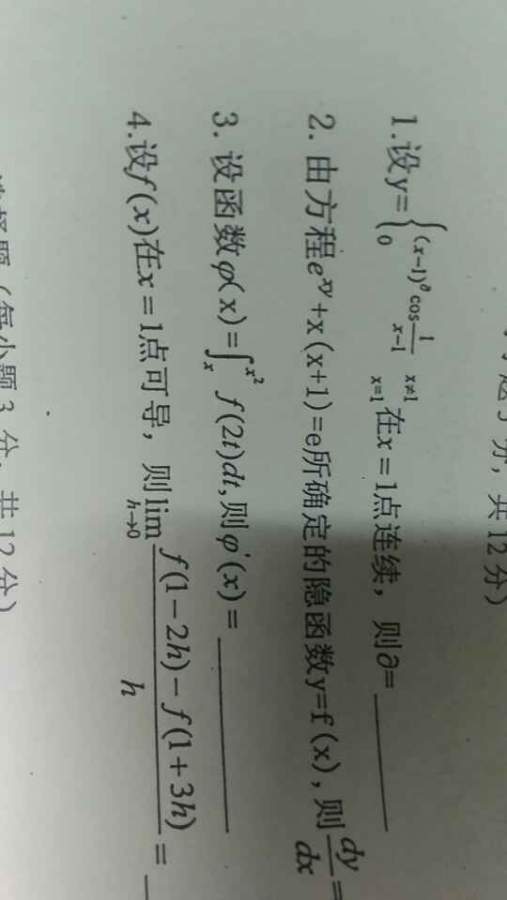 分，共12分）
1.设y={(x-1)^∂ cos 1/(x-1) x≠1
0 x=1 在x=1点连续，则∂=______
2. 由方程e^{xy}+x(x+1)=e所确定的隐函数y=f(x)，则dy/dx=
3. 设函数φ(x)=∫_x^{x²} f(2t)dt,则φ'(x)=______
4.设f(x)在x=1点可导，则lim_{h→0} (f(1-2h)-f(1+3h))/h=_
选择题（每小题3分，共12分）